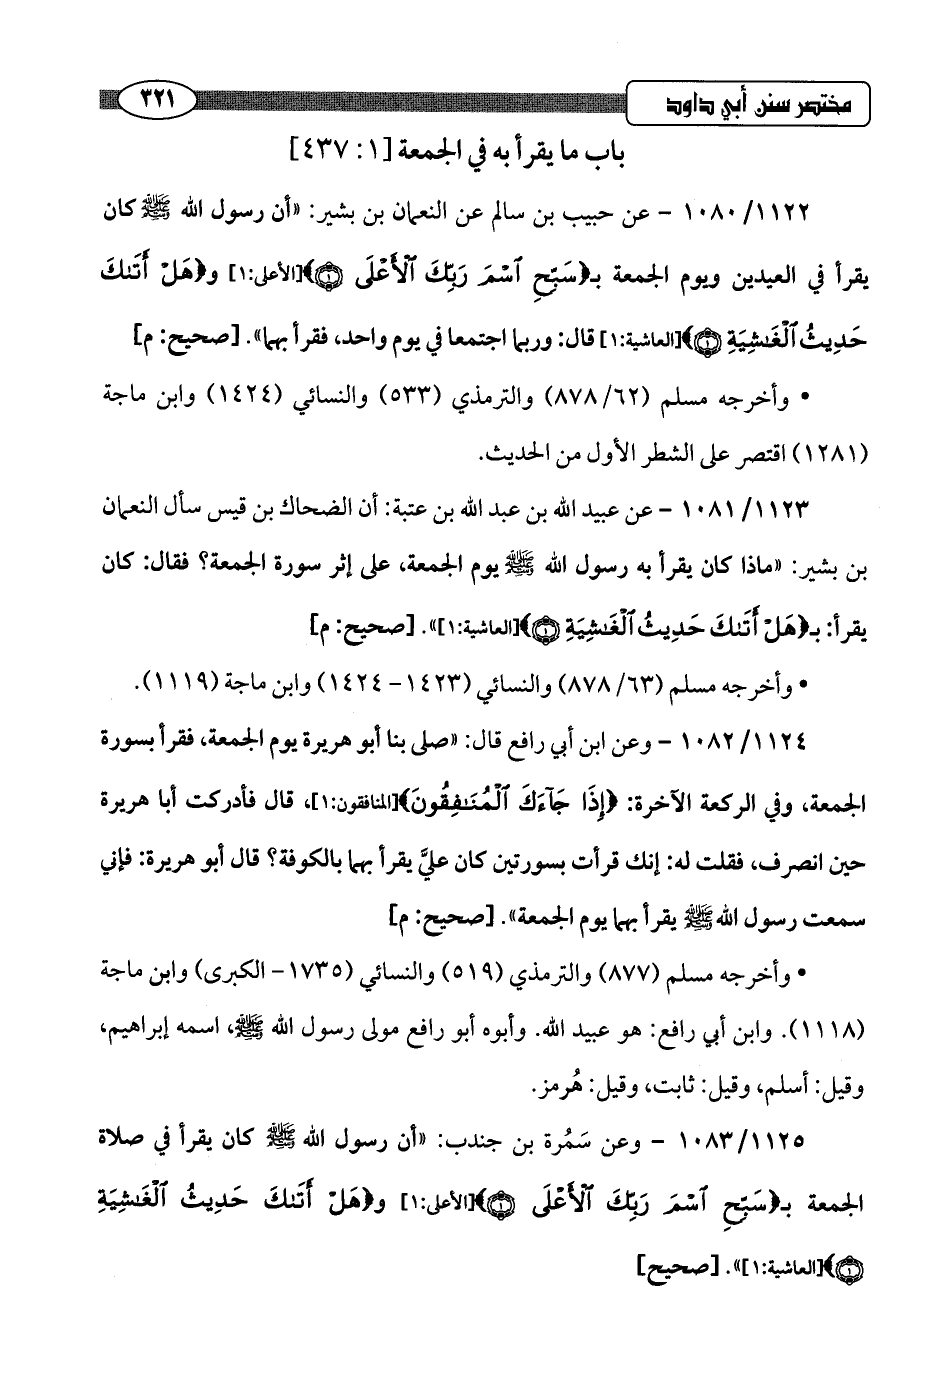 مختصر سنن أبي داود
٣٢١
باب ما يقرأ به في الجمعة [١: ٤٣٧]
١٠٨٠/١١٢٢ - عن حبيب بن سالم عن النعمان بن بشير: «أن رسول الله ﷺ كان
يقرأ في العيدين ويوم الجمعة بـ﴿سَبِّحِ ٱسْمَ رَبِّكَ ٱلْأَعْلَى ۝١﴾[الأعلى:١] و﴿هَلْ أَتَىٰكَ
حَدِيثُ ٱلْغَـٰشِيَةِ ۝١﴾[الغاشية:١] قال: وربما اجتمعا في يوم واحد، فقرأ بهما». [صحيح: م]
• وأخرجه مسلم (٨٧٨/٦٢) والترمذي (٥٣٣) والنسائي (١٤٢٤) وابن ماجة
(١٢٨١) اقتصر على الشطر الأول من الحديث.
١٠٨١/١١٢٣ - عن عبيد الله بن عبد الله بن عتبة: أن الضحاك بن قيس سأل النعمان
بن بشير: «ماذا كان يقرأ به رسول الله ﷺ يوم الجمعة، على إثر سورة الجمعة؟ فقال: كان
يقرأ: بـ﴿هَلْ أَتَىٰكَ حَدِيثُ ٱلْغَـٰشِيَةِ ۝١﴾[الغاشية:١]». [صحيح: م]
• وأخرجه مسلم (٨٧٨/٦٣) والنسائي (١٤٢٣-١٤٢٤) وابن ماجة (١١١٩).
١٠٨٢/١١٢٤ - وعن ابن أبي رافع قال: «صلى بنا أبو هريرة يوم الجمعة، فقرأ بسورة
الجمعة، وفي الركعة الآخرة: ﴿إِذَا جَآءَكَ ٱلْمُنَـٰفِقُونَ﴾[المنافقون:١]، قال فأدركت أبا هريرة
حين انصرف، فقلت له: إنك قرأت بسورتين كان عليَّ يقرأ بهما بالكوفة؟ قال أبو هريرة: فإني
سمعت رسول الله ﷺ يقرأ بهما يوم الجمعة». [صحيح: م]
• وأخرجه مسلم (٨٧٧) والترمذي (٥١٩) والنسائي (١٧٣٥- الكبرى) وابن ماجة
(١١١٨). وابن أبي رافع: هو عبيد الله. وأبوه أبو رافع مولى رسول الله ﷺ، اسمه إبراهيم،
وقيل: أسلم، وقيل: ثابت، وقيل: هُرمز.
١٠٨٣/١١٢٥ - وعن سَمُرة بن جندب: «أن رسول الله ﷺ كان يقرأ في صلاة
الجمعة بـ﴿سَبِّحِ ٱسْمَ رَبِّكَ ٱلْأَعْلَى ۝١﴾[الأعلى:١] و﴿هَلْ أَتَىٰكَ حَدِيثُ ٱلْغَـٰشِيَةِ
۝١﴾[الغاشية:١]». [صحيح]